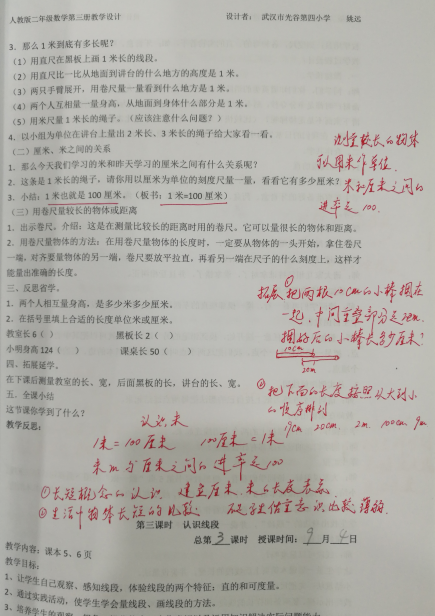 人教版二年级数学第三册教学设计 设计者： 武汉市光谷第四小学 姚远
3．那么1米到底有多长呢？
（1）用直尺在黑板上画1米长的线段。
（2）用直尺比一比从地面到讲台的什么地方的高度是1米。
（3）两只手臂展开，用卷尺量一量看到什么地方是1米。
（4）两个人互相量一量身高，从地面到身体什么部分是1米。
（5）用米尺量1米长的绳子。（应该注意什么问题？）
4．以小组为单位在讲台上量出2米长、3米长的绳子给大家看一看。
（二）厘米、米之间的关系
1．那么今天我们学习的米和昨天学习的厘米之间有什么关系呢？
2．这条是1米长的绳子，请你用以厘米为单位的刻度尺量一量，看看它有多少厘米？
3．小结：1米也就是100厘米。（板书：1米=100厘米）
测量较长的物体
以用米作单位
米和厘米之间的
进率是100.
（三）用卷尺量较长的物体或距离
1．出示卷尺。介绍：这是在测量比较长的距离时用的卷尺。它可以量很长的物体和距离。
2．用卷尺量物体的方法：在用卷尺量物体的长度时，一定要从物体的一头开始，拿住卷尺
一端，对齐要量物体的另一端，卷尺要放平拉直，再看另一端在尺子的什么刻度上，这样才
能量出准确的长度。
三、反思省学。
1．两个人相互量身高，是多少米多少厘米。
2．在括号里填上合适的长度单位米或厘米。
教室长6（ ） 黑板长2（ ）
小明身高124（ ） 课桌长50（ ）
四、拓展延学。
在下课后测量教室的长、宽，后面黑板的长，讲台的长、宽。
五、全课小结
这节课你学到了什么？
教学反思：
①
拓展 把两根10cm的小棒捆在
一起，中间重叠部分是2cm.
捆好后的小棒长多少厘米？
10cm
2cm
②把下面的长度按照从大到小
的顺序排列
19cm 20cm. 2m 100cm 9m
认识米
1米=100厘米 100厘米=1米
米与厘米之间的进率是100
①长短概念的认识 建立厘米.米的长度表象
②生活中物体长短的比较
第三课时 认识线段
总第3课时 授课时间：9月4日
教学内容：课本5、6页
教学目标：
1、让学生自己观察、感知线段，体验线段的两个特征：直的和可度量。
2、通过实践活动，使学生学会量线段、画线段的方法。